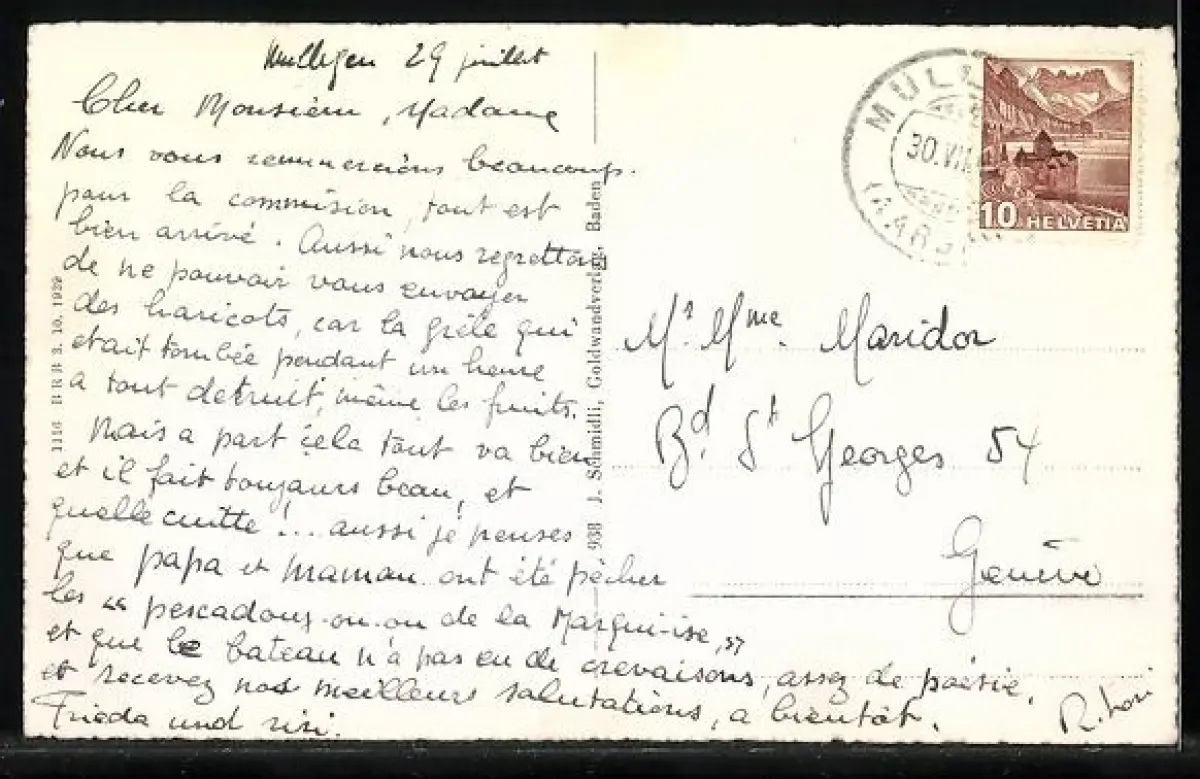 Mulligen 29 juillet
Cher Monsieur, Madame
Nous vous remmercions beaucoup.
pour la commision, tout est
bien arrivé. Aussi nous regrettons
de ne pouvoir vous envoyer
des haricots, car la grêle qui
etait tombée pendant un heure
a tout detruit, même les fruits.
Mais a part cela tout va bien
et il fait toujours beau, et
quelle cuitte !... aussi je penses
que papa et maman ont été pêcher
les " pescadous-ou-ou de la Marqui-ise, "
et que le bateau n'a pas eu de crevaisons, assez de poésie,
et recevez nos meilleurs salutations, a bientôt.
Frieda und
R.
1116 BRB 3. 10. 1939
938 J. Schmidli, Goldwandverlag, Baden
MULL
30.VII
(AARGAU)
10 HELVETIA
Mr. Mme. Maridor
Bd. St Georges 54
Genève